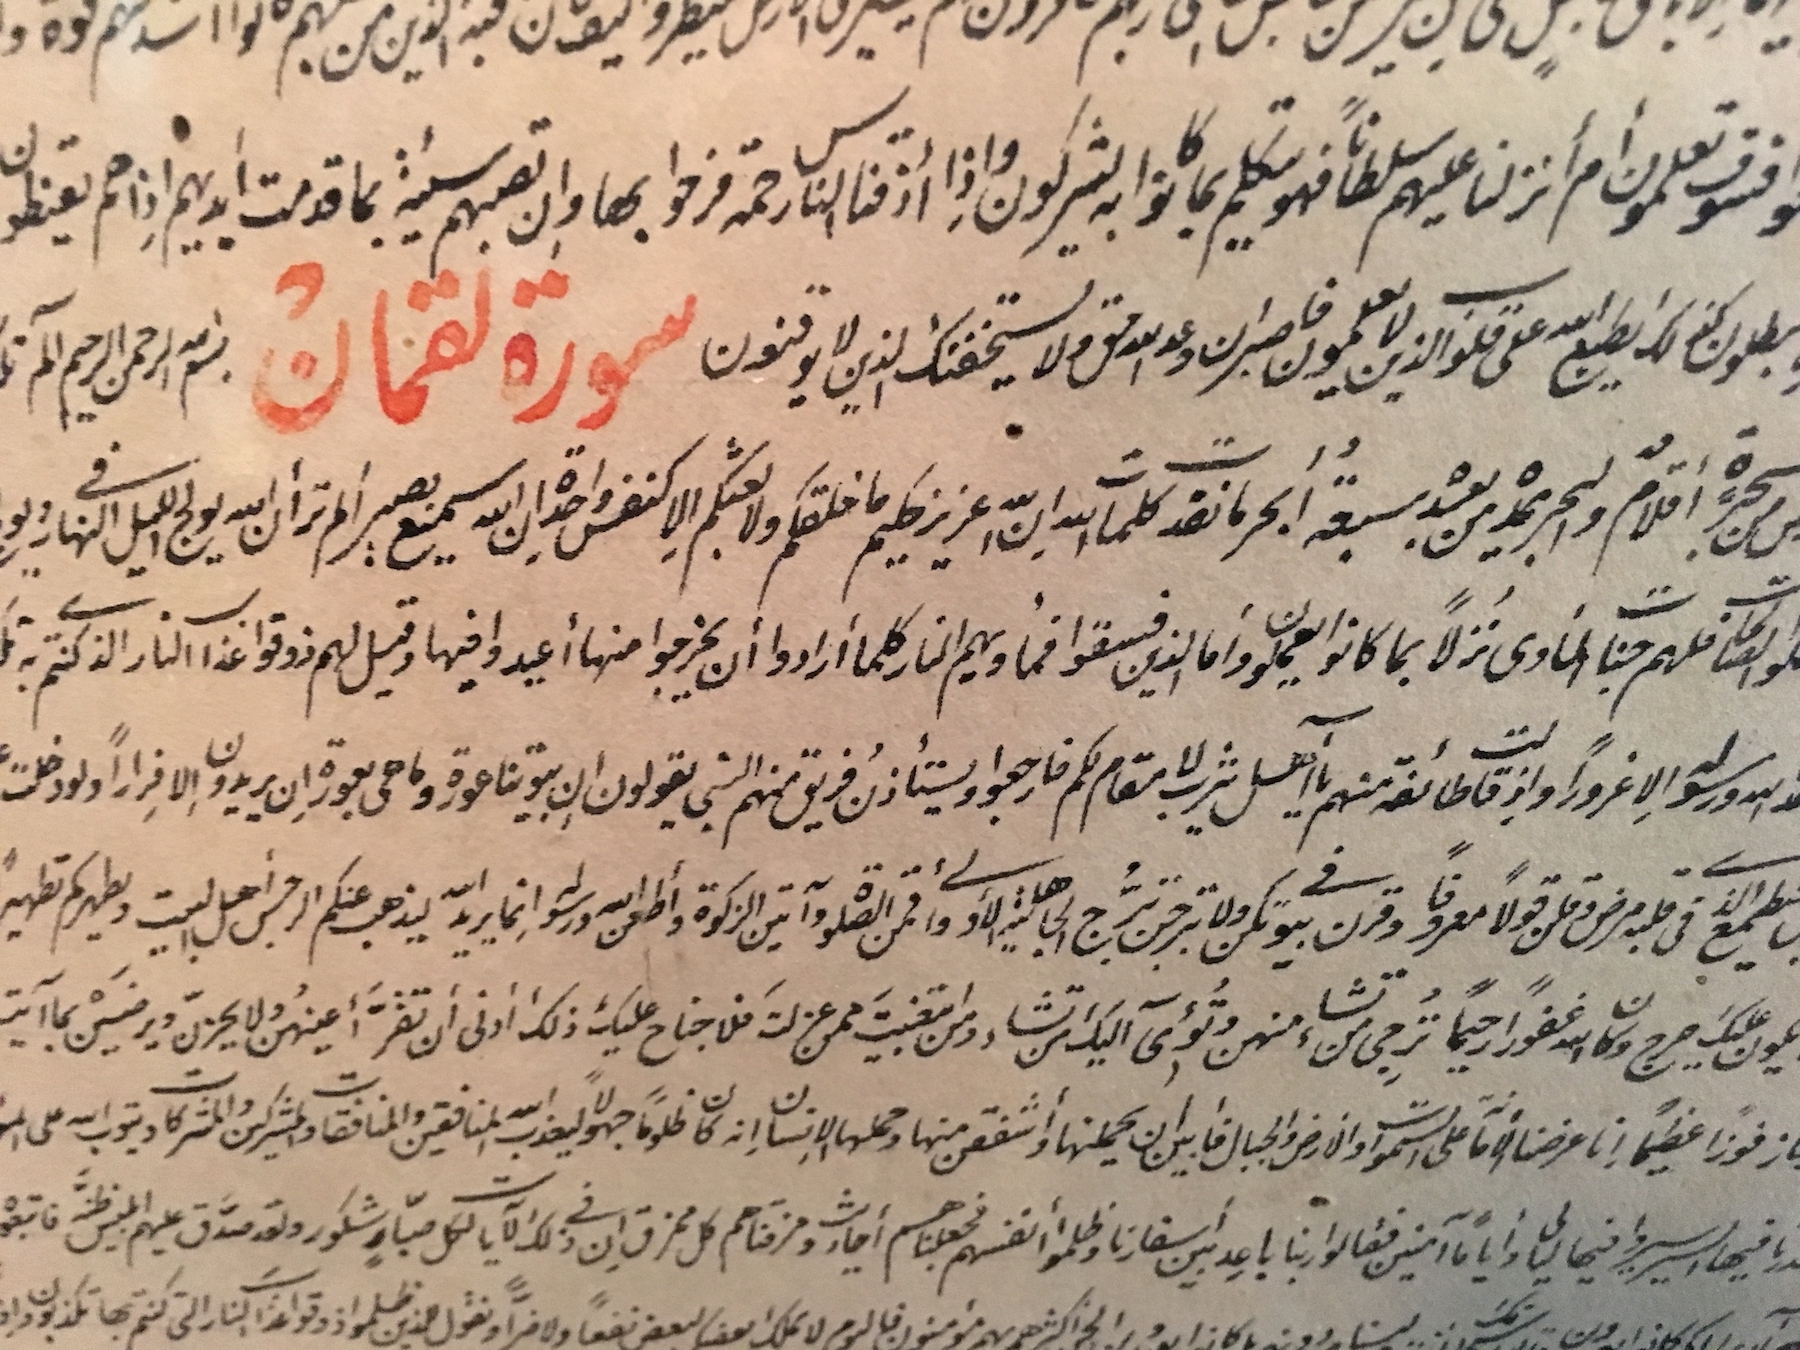 فتمتعوا فسوف تعلمون أم أنزلنا عليهم سلطاناً فهو يتكلم بما كانوا به يشركون وإذا أذقنا الناس رحمة فرحوا بها وإن تصبهم سيئة بما قدمت أيديهم إذا هم يقنطون
مبطلون كذلك يطبع الله على قلوب الذين لا يعلمون فاصبر إن وعد الله حق ولا يستخفنك الذين لا يوقنون سورة لقمان بسم الله الرحمن الرحيم الم
من شجرةٍ أقلامٌ والبحر يمده من بعده سبعة أبحر ما نفدت كلمات الله إن الله عزيز حكيم ما خلقكم ولا بعثكم إلا كنفس واحدة إن الله سميع بصير ألم تر أن الله يولج الليل في النهار ويولج
الصالحات فلهم جنات المأوى نُزلاً بما كانوا يعملون وأما الذين فسقوا فمأويهم النار كلما أرادوا أن يخرجوا منها أعيدوا فيها وقيل لهم ذوقوا عذاب النار الذي كنتم به
الله ورسوله إلا غروراً وإذ قالت طائفة منهم يا أهل يثرب لا مقام لكم فارجعوا ويستأذن فريق منهم النبي يقولون إن بيوتنا عورة وما هي بعورة إن يريدون إلا فراراً ولو دخلت
فيطمع الذي في قلبه مرض وقلن قولاً معروفاً وقرن في بيوتكن ولا تبرجن تبرج الجاهلية الأولى وأقمن الصلوة وآتين الزكوة وأطعن الله ورسوله إنما يريد الله ليذهب عنكم الرجس أهل البيت ويطهركم تطهيراً
يكون عليك حرج وكان الله غفوراً رحيماً تُرجي من تشاء منهن وتُؤي إليك من تشاء ومن ابتغيت ممن عزلت فلا جناح عليك ذلك أدنى أن تقرَّ أعينهن ولا يحزنَّ ويرضين بما آتيت
فاز فوزاً عظيماً إنا عرضنا الأمانة على السموات والأرض والجبال فأبين أن يحملنها وأشفقن منها وحملها الإنسان إنه كان ظلوماً جهولاً ليعذب الله المنافقين والمنافقات والمشركين والمشركات ويتوب الله على
فيها السير سيروا فيها ليالي وأياماً آمنين فقالوا ربنا باعد بين أسفارنا وظلموا أنفسهم فجعلناهم أحاديث ومزقناهم كل ممزق إن في ذلك لآيات لكل صبار شكور ولقد صدّق عليهم إبليس ظنه فاتبعوه
أكثرهم بهم مؤمنون فاليوم لا يملك بعضكم لبعض نفعاً ولا ضراً ونقول للذين ظلموا ذوقوا عذاب النار التي كنتم بها تكذبون